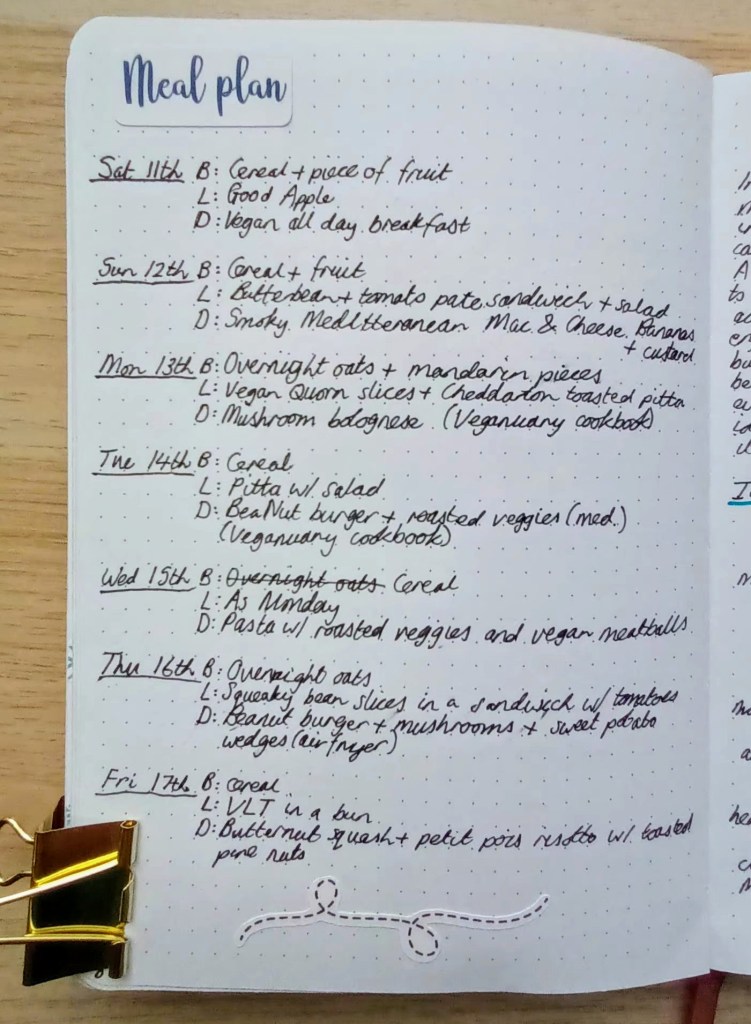 Meal plan
Sat 11th B: Cereal + piece of fruit
L: Good Apple
D: Vegan all day breakfast
Sun 12th B: Cereal + fruit
L: Butterbean + tomato pate sandwich + salad
D: Smoky Meditteranean Mac & Cheese. Bananas
+ custard
Mon 13th B: Overnight oats + mandarin pieces
L: Vegan Quorn slices + Cheddarton toasted pitta
D: Mushroom bolognese (Veganuary cookbook)
Tue 14th B: Cereal
L: Pitta w/ salad
D: BeaNut burger + roasted veggies (med.)
(Veganuary cookbook)
Wed 15th B: Overnight oats Cereal
L: As Monday
D: Pasta w/ roasted veggies and vegan meatballs
Thu 16th B: Overnight oats
L: Squeaky bean slices in a sandwich w/ tomatoes
D: Beanut burger + mushrooms + sweet potato
wedges (air fryer)
Fri 17th B: Cereal
L: VLT in a bun
D: Butternut squash + petit pois risotto w/ toasted
pine nuts